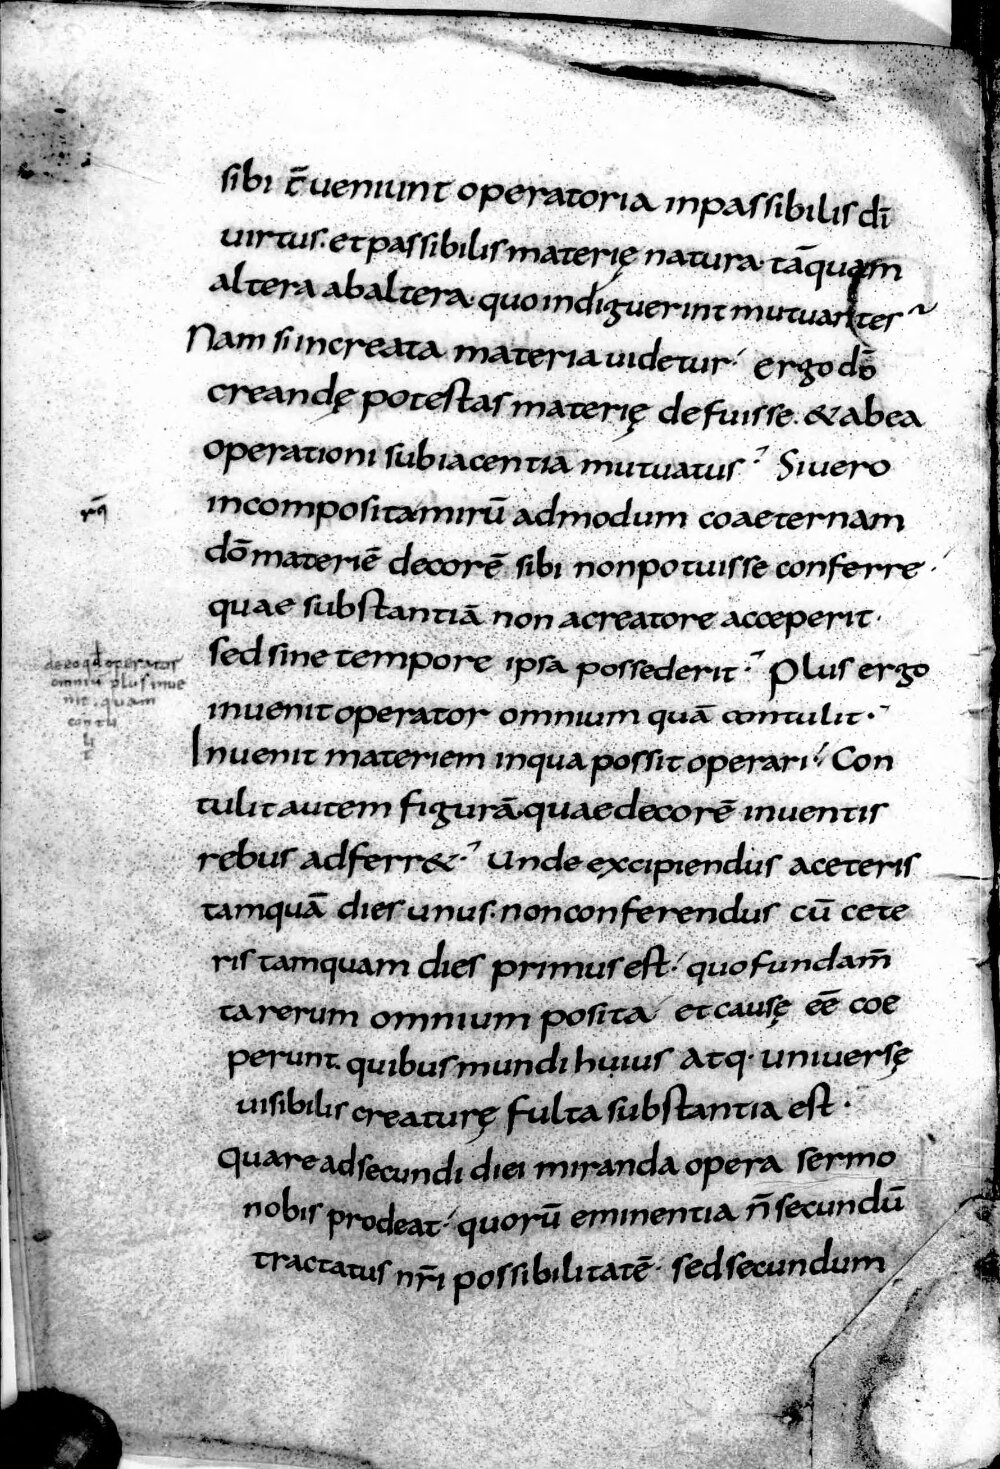 sibi c̄ueniunt operatoria inpassibilis dī
uirtus. et passibilis materię natura. tāquam
altera ab altera quo indiguerint mutuanter
Nam si increata materia uidetur ergo dō
creandę potestas materię defuisse. & ab ea
operationi subiacentia mutuatus Si uero
rq̄
incomposita mirū admodum coaeternam
dō materiē decorē sibi non potuisse conferre.
quae substantiā non a creatore acceperit.
sed sine tempore ipsa possederit. Plus ergo
de eo qđ operator
omniū plus inue
nit. quam
contu
li
t
inuenit operator omnium quā contulit.
Inuenit materiem in qua possit operari. Con
tulit autem figurā. quae decorē inuentis
rebus adferr&. Unde excipiendus a ceteris
tamquā dies unus. non conferendus cū cete
ris tamquam dies primus est. quo fundam̄
ta rerum omnium posita et causę eē coe
perunt. quibus mundi huius atq. uniuersę
uisibilis creaturę fulta substantia est.
quare ad secundi diei miranda opera sermo
nobis prodeat. quorū eminentia n̄ secundū
tractatus nr̄i possibilitatē. sed secundum